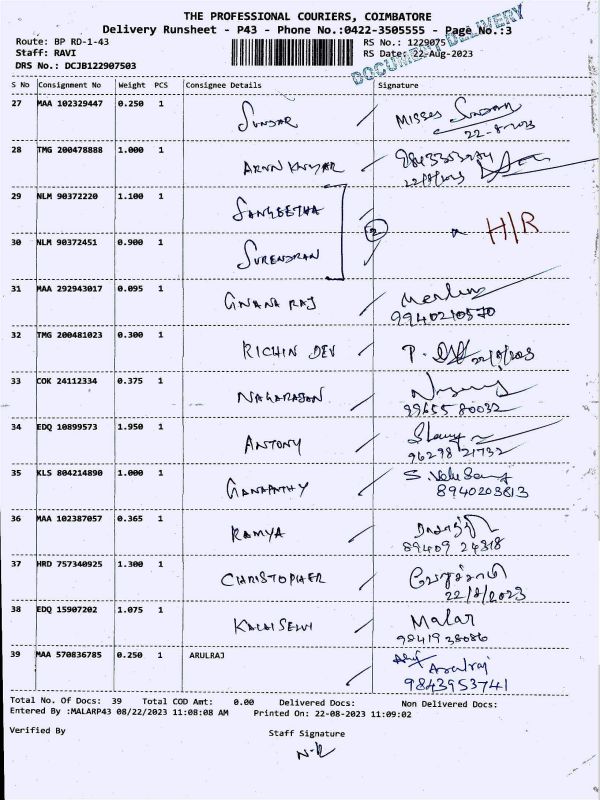 THE PROFESSIONAL COURIERS, COIMBATORE
Delivery Runsheet - P43 - Phone No.:0422-3505555 - Page No.:3
Route: BP RD-1-43 RS No.: 1229075
Staff: RAVI RS Date: 22-Aug-2023
DRS No.: DCJB122907503
DOCUMENT DELIVERY
S No Consignment No Weight PCS Consignee Details Signature
27 MAA 102329447 0.250 1 SUNDAR MISSES Sundar
22-8-2023
28 TMG 200478888 1.000 1 ARUN KUMAR
22/8/2023
29 NLM 90372220 1.100 1 SANGEETHA
2 H/R
30 NLM 90372451 0.900 1 SURENDRAN
31 MAA 292943017 0.095 1 GNANA RAJ Merlin
9940210570
32 TMG 200481023 0.300 1 RICHIN DEV P. 22/8/2023
33 COK 24112334 0.375 1 NAGARAJAN
99655 80032
34 EDQ 10899573 1.950 1 ANTONY
96298 21732
35 KLS 804214890 1.000 1 GANAPATHY
8940203813
36 MAA 102387057 0.365 1 RAMYA
89409 24318
37 HRD 757340925 1.300 1 CHRISTOPHER
22/8/2023
38 EDQ 15907202 1.075 1 KALAI SELVI Malar
98419 38086
39 MAA 570836785 0.250 1 ARULRAJ Arulraj
9843953741
Total No. Of Docs: 39 Total COD Amt: 0.00 Delivered Docs: Non Delivered Docs:
Entered By :MALARP43 08/22/2023 11:08:08 AM Printed On: 22-08-2023 11:09:02
Verified By Staff Signature
N-R